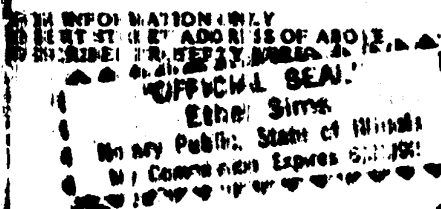 INFORMATION ONLY
INSERT STREET ADDRESS OF ABOVE
DESCRIBED PROPERTY
"OFFICIAL SEAL"
Ethel Sims
Notary Public, State of Illinois
My Commission Expires